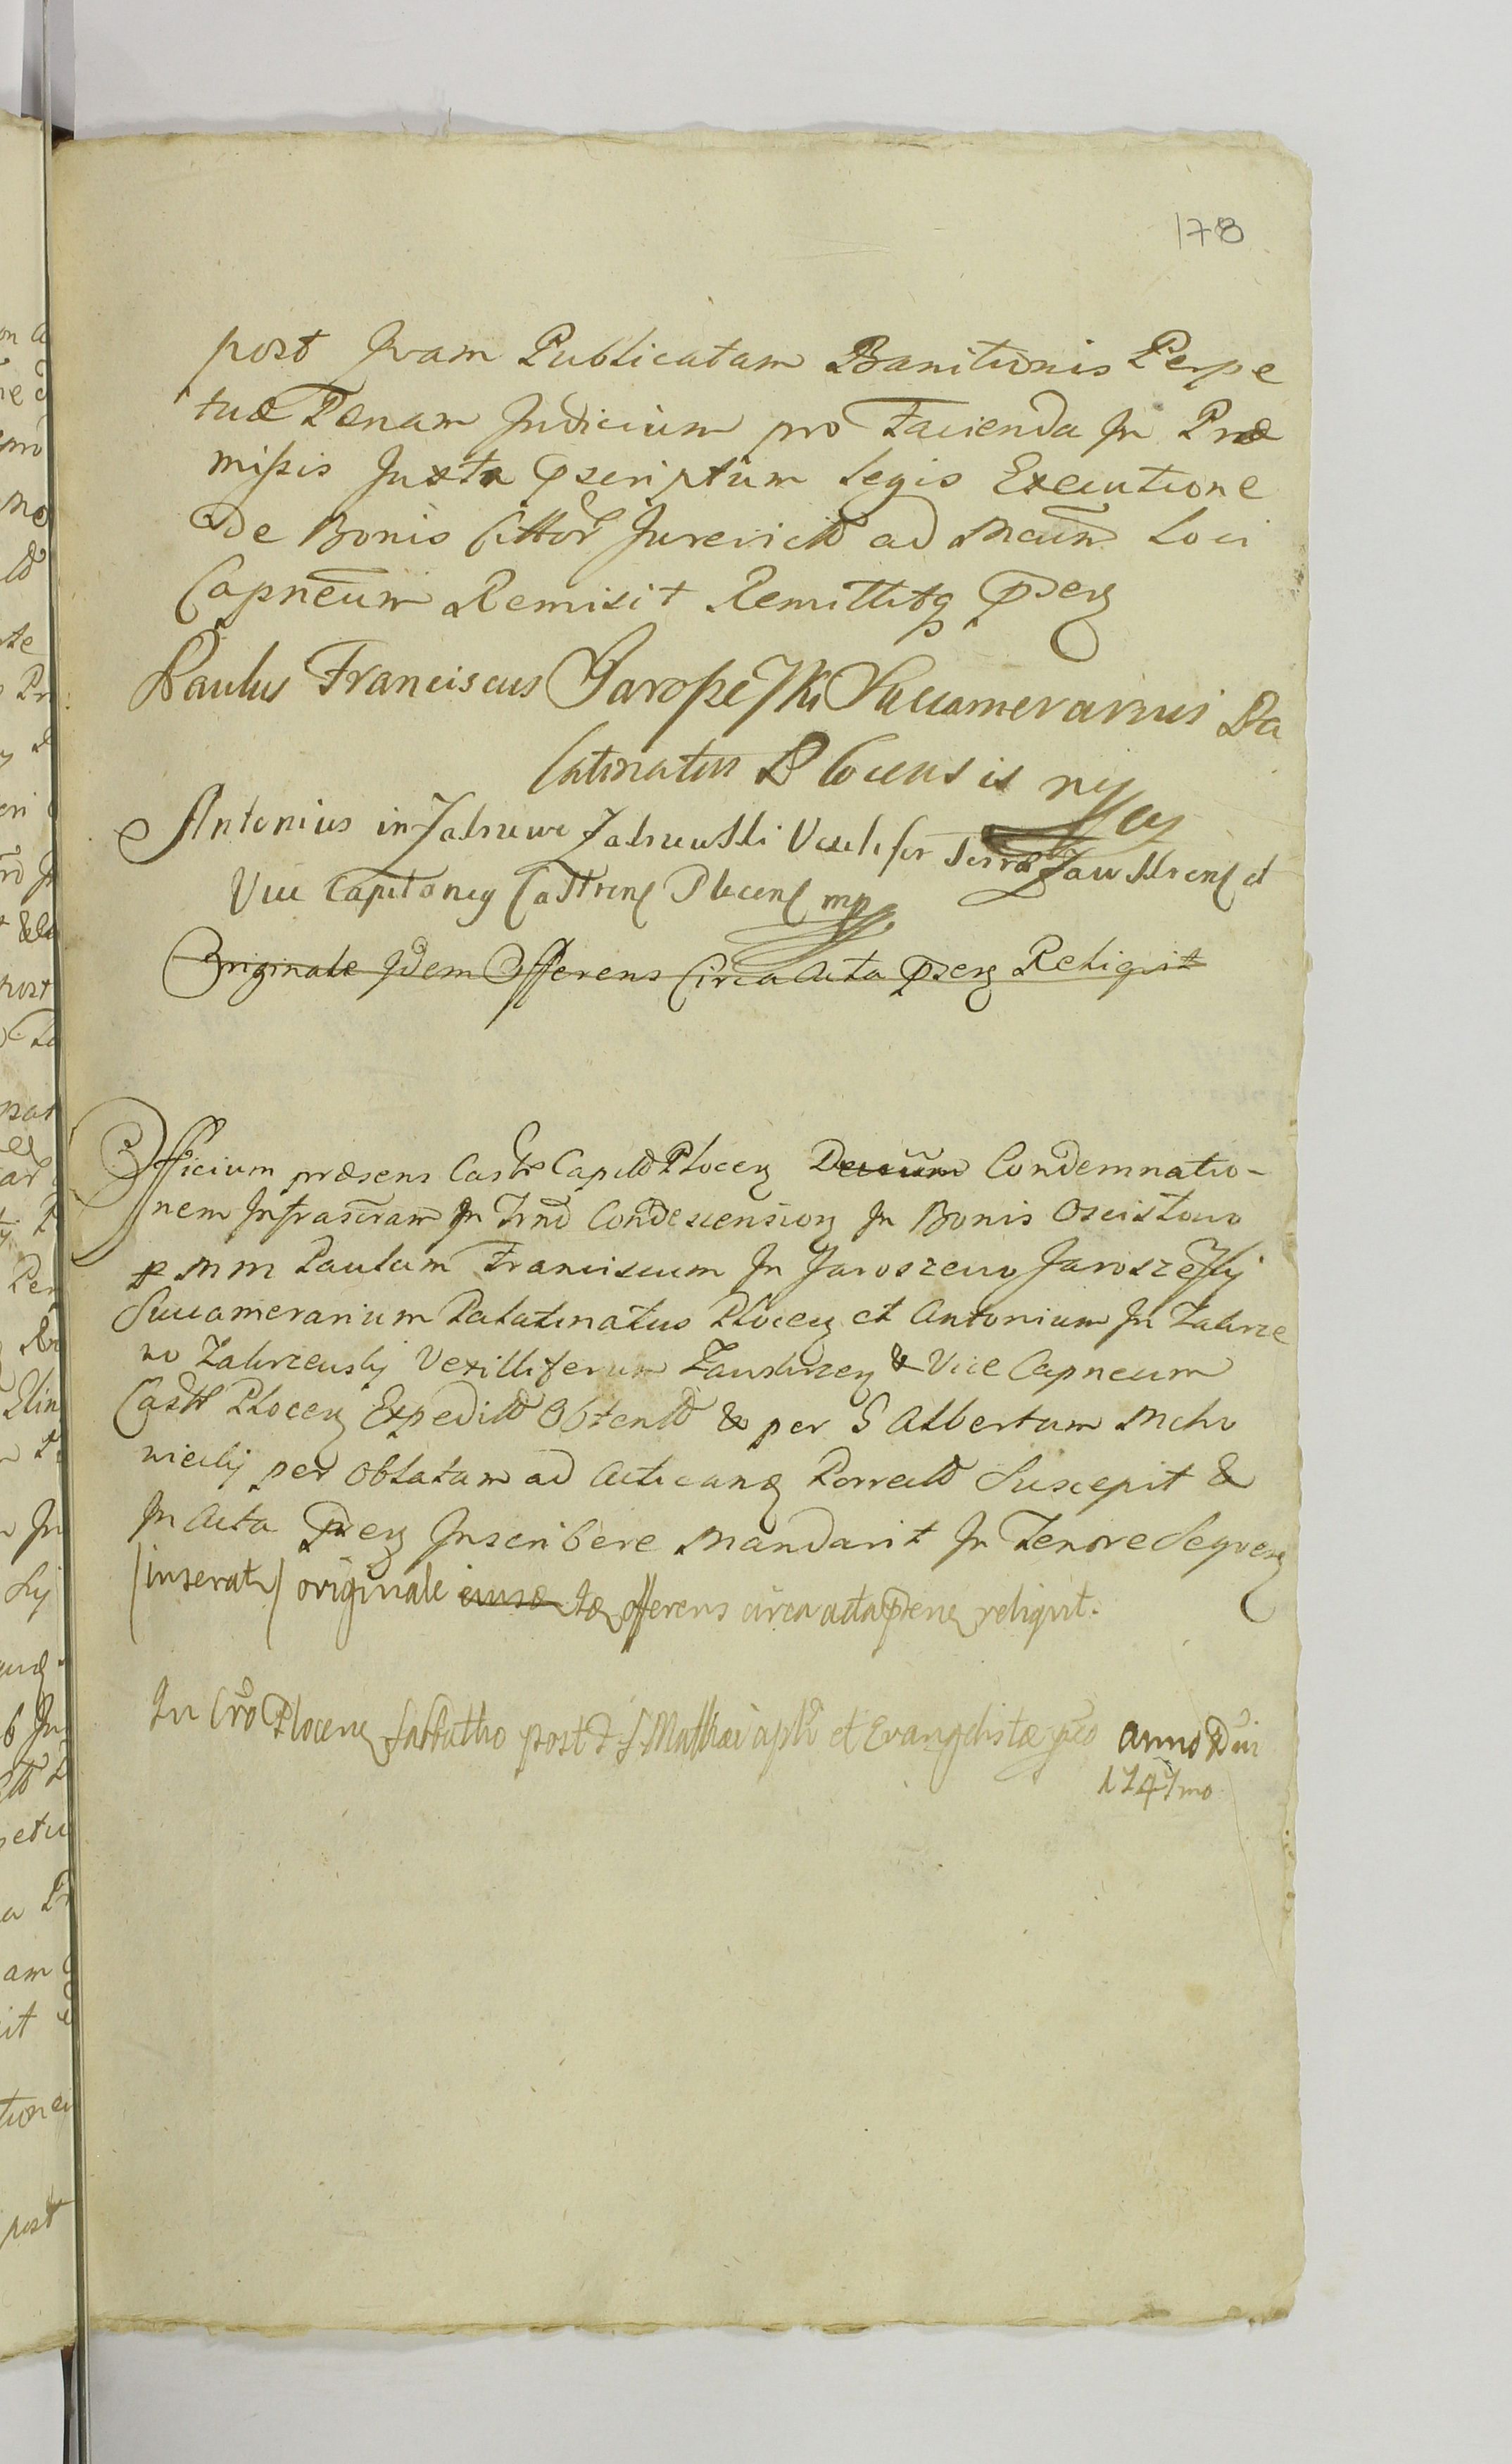 178
post Jvam Publicatam Banitionis Perpe
tuæ Pœnam Judicium pro Facienda In Præ
missis Juxta Pscriptum Legis Executione
De Bonis Cittor Jurevict ad Mcum Loci
Capneum Remisit Remittitq Psen
Paulus Franciscus Jaroszeski Succamerarius Pa
latinatus Plocensis
Antonius in Zakrzewo Zakrzewski Vexilifer Terræ Zawskrens et
Vice Capitaneus Castrens Plocens mp
Originale Idem Offerens Circa Acta Psen Reliqvit
Officium præsens Castr Capit Plocen Decium Condemnatio-
nem Infrascram In Trno Condescension In Bonis Oscislowo
p MM Paulum Franciscum In Jaroszewo Jaroszeski
Succamerarium Palatinatus Plocen et Antonium In Zakrze
wo Zakrzewskj Vexilliferum Zawskrzen & Vice Capneum
Castr Plocen Expedit Obtent & per G Albertum Mcho
wieckj per Oblatam ad Acticand Porrect Suscepit &
In Acta Psen Inscribere Mandavit In Tenore Seqven
(inserat) originale idem offerens circa acta psens reliqvit.
In Cro Plocens Sabbatho post F S. Matthæi apli et Evangelistæ pxo anno Dni
1747mo